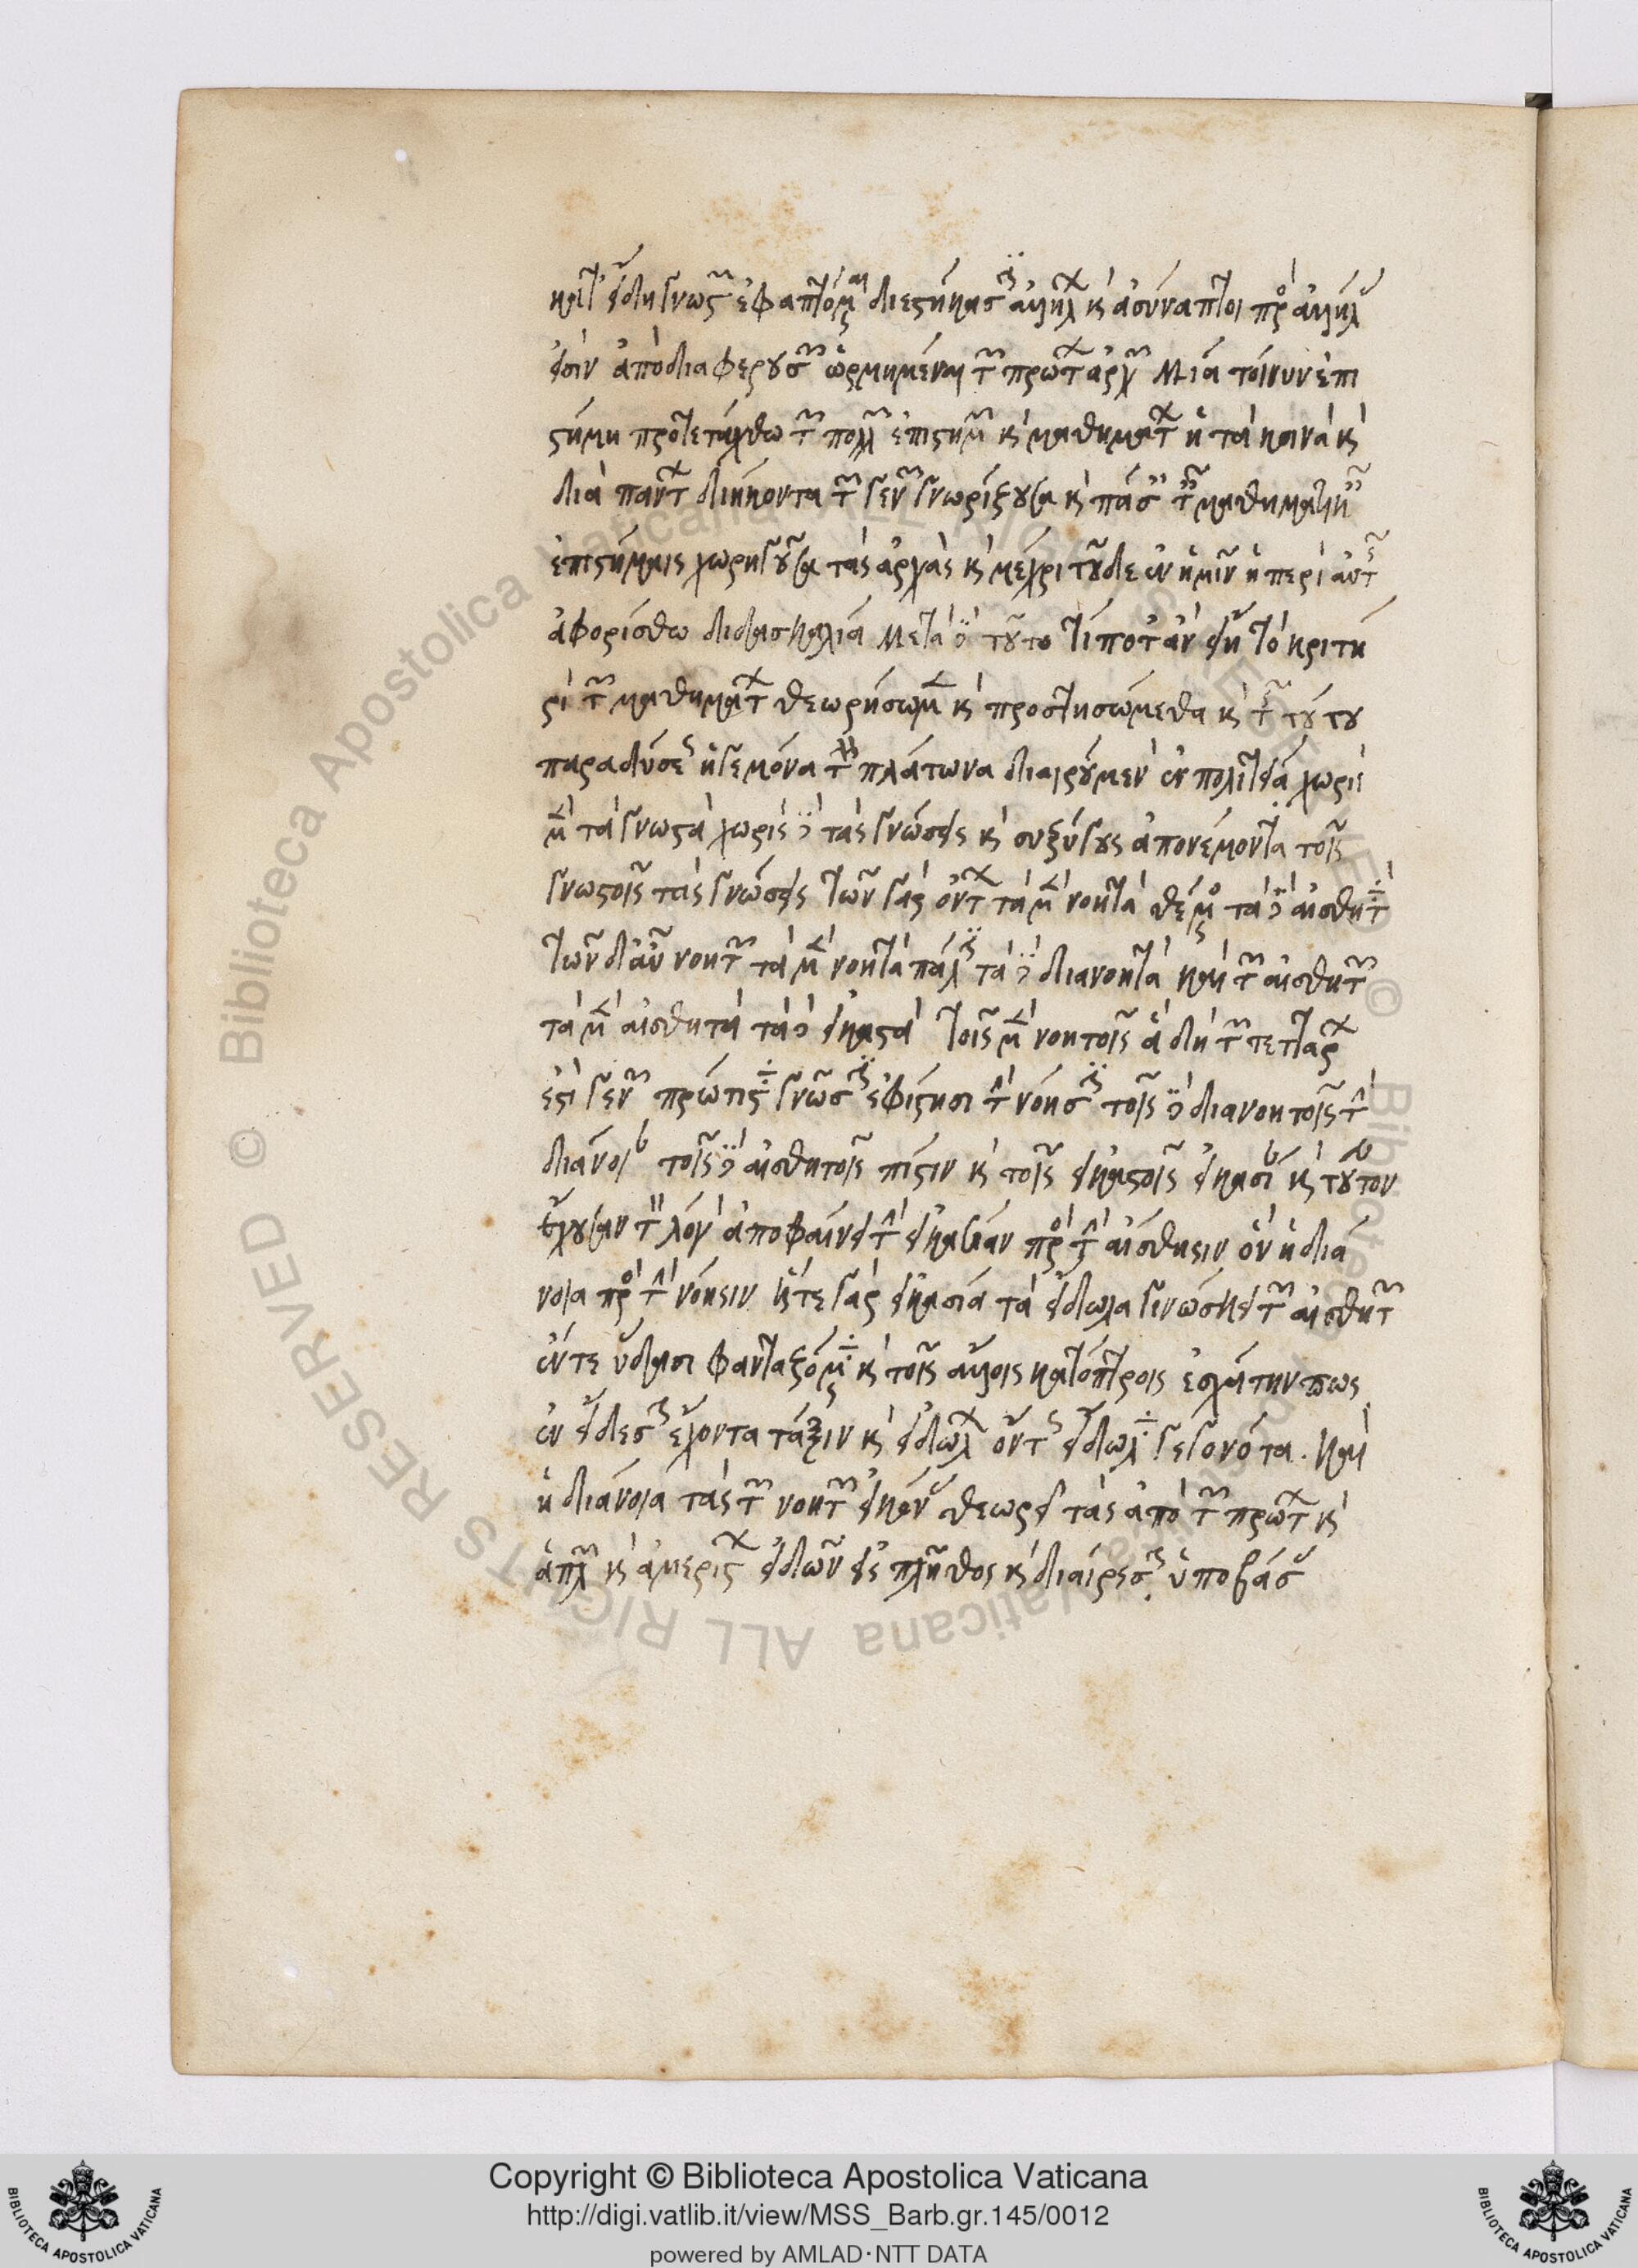 κατ' εἴδη γνώσεων ἐφαπτόμεναι διεστήκασιν ἀλλήλων καὶ ἀσύναπτοι πρὸς ἀλλήλας
εἰσὶν ἀπὸ διαφερουσῶν ὡρμημέναι τῶν πρώτων ἀρχῶν Μία τοίνυν ἐπι
στήμη προτετάχθω τῶν πολλῶν ἐπιστημῶν καὶ μαθημάτων ἡ τὰ κοινὰ καὶ
διὰ πάντων διήκοντα τῶν γενῶν γνωρίζουσα καὶ πάσαις ταῖς μαθηματικαῖς
ἐπιστήμαις χωρηγοῦσα τὰς ἀρχὰς καὶ μέχρι τοῦδε ἐν ἡμῖν ἡ περὶ αὐτῆς
ἀφορίσθω διδασκαλία Μετὰ δὲ τοῦτο τί ποτ' ἂν εἴη τὸ κριτή
ριον τῶν μαθημάτων θεωρήσωμεν καὶ προστησώμεθα καὶ τῆς τούτου
παραδόσεως ἡγεμόνα τὸν πλάτωνα διαιρούμενον ἐν πολιτείᾳ χωρὶς
μὲν τὰ γνωστὰ χωρὶς δὲ τὰς γνώσεις καὶ συζύγους ἀπονέμοντα τοῖς
γνωστοῖς τὰς γνώσεις τῶν γὰρ ὄντων τὰ μὲν νοητὰ θέμενος τὰ δὲ αἰσθητὰ
τῶν δ' αὖ νοητῶν τὰ μὲν νοητὰ πάλιν τὰ δὲ διανοητὰ καὶ τῶν αἰσθητῶν
τὰ μὲν αἰσθητὰ τὰ δὲ εἰκαστὰ τοῖς μὲν νοητοῖς ἃ δὴ τῶν τεττάρων
ἐστὶ γενῶν πρώτιστα γνῶσιν ἐφίστησι τὴν νόησιν τοῖς δὲ διανοητοῖς τὴν
διάνοιαν τοῖς δὲ αἰσθητοῖς πίστιν καὶ τοῖς εἰκαστοῖς εἰκασίαν καὶ τοῦτον
ἔχουσαν τὸν λόγον ἀποφαίνει τὴν εἰκασίαν πρὸς τὴν αἴσθησιν ὃν ἡ διά
νοια πρὸς τὴν νόησιν ἥ τε γὰρ εἰκασία τὰ εἴδωλα γινώσκει τῶν αἰσθητῶν
ἔν τε ὕδασι φανταζόμενα καὶ τοῖς ἄλλοις κατόπτροις ἐσχάτην πως
ἐν εἴδεσιν ἔχοντα τάξιν καὶ εἰδώλων ὄντως εἴδωλα γεγονότα. καὶ
ἡ διάνοια τὰς τῶν νοητῶν εἰκόνας θεωρεῖ τὰς ἀπὸ τῶν πρώτων καὶ
ἁπλῶν καὶ ἀμερίστων εἰδῶν εἰς πλῆθος καὶ διαίρεσιν ὑποβάσας
Copyright © Biblioteca Apostolica Vaticana
http://digi.vatlib.it/view/MSS_Barb.gr.145/0012
powered by AMLAD·NTT DATA